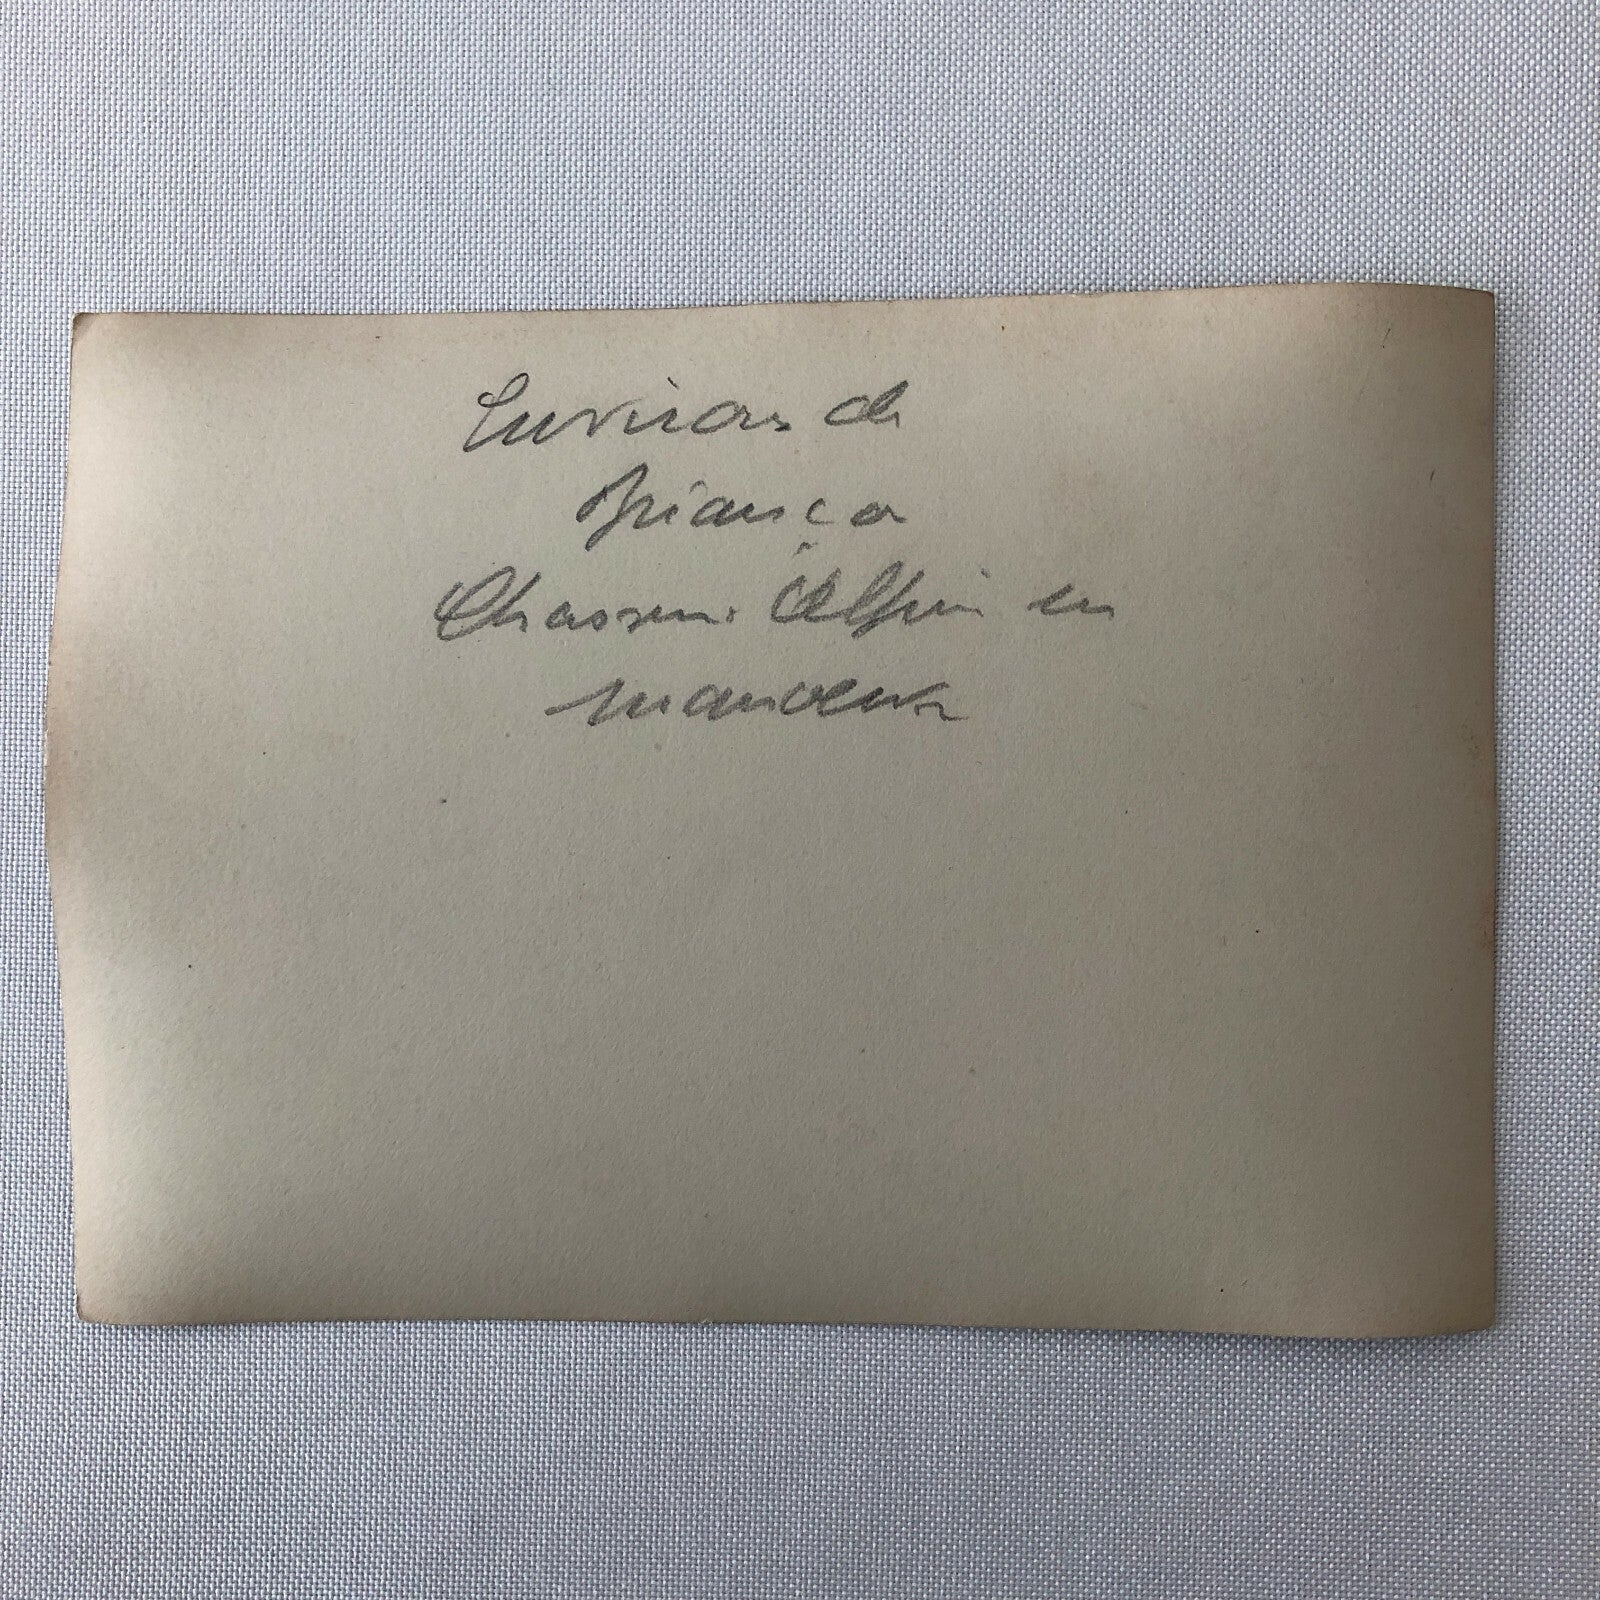 Environs de
Briançon
Chasseurs Alpins en
manoeuvre